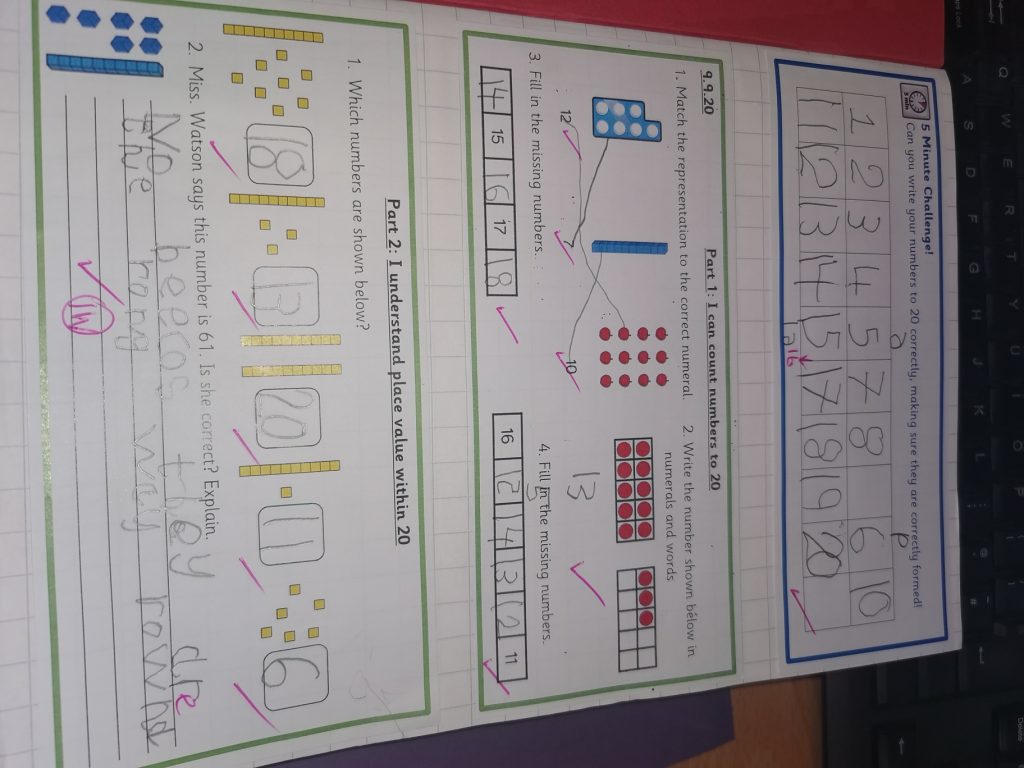 5 Minute Challenge!
Can you write your numbers to 20 correctly, making sure they are correctly formed!
5 min
1 2 3 4 5 7 8 6 10
11 12 13 14 15 17 18 19 20
16
9.9.20
Part 1: I can count numbers to 20
1. Match the representation to the correct numeral.
12 7 10
2. Write the number shown below in
numerals and words
13
3. Fill in the missing numbers.
14 15 16 17 18
4. Fill in the missing numbers.
16 15 14 13 12 11
Part 2: I understand place value within 20
1. Which numbers are shown below?
18 13 20 11 6
2. Miss. Watson says this number is 61. Is she correct? Explain.
No becos they are
the rong way rownd